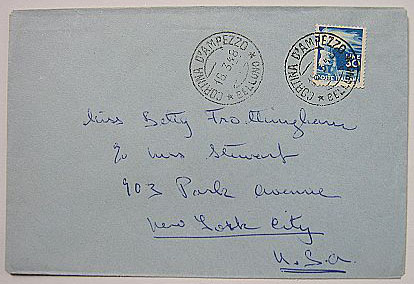 CORTINA D'AMPEZZO * BELLUNO *
16.3.48
CORTINA D'AMPEZZO * BELLUNO *
Miss Betty Frottingham
c/o Mrs Stewart
903 Park Avenue
New York City
U.S.a.